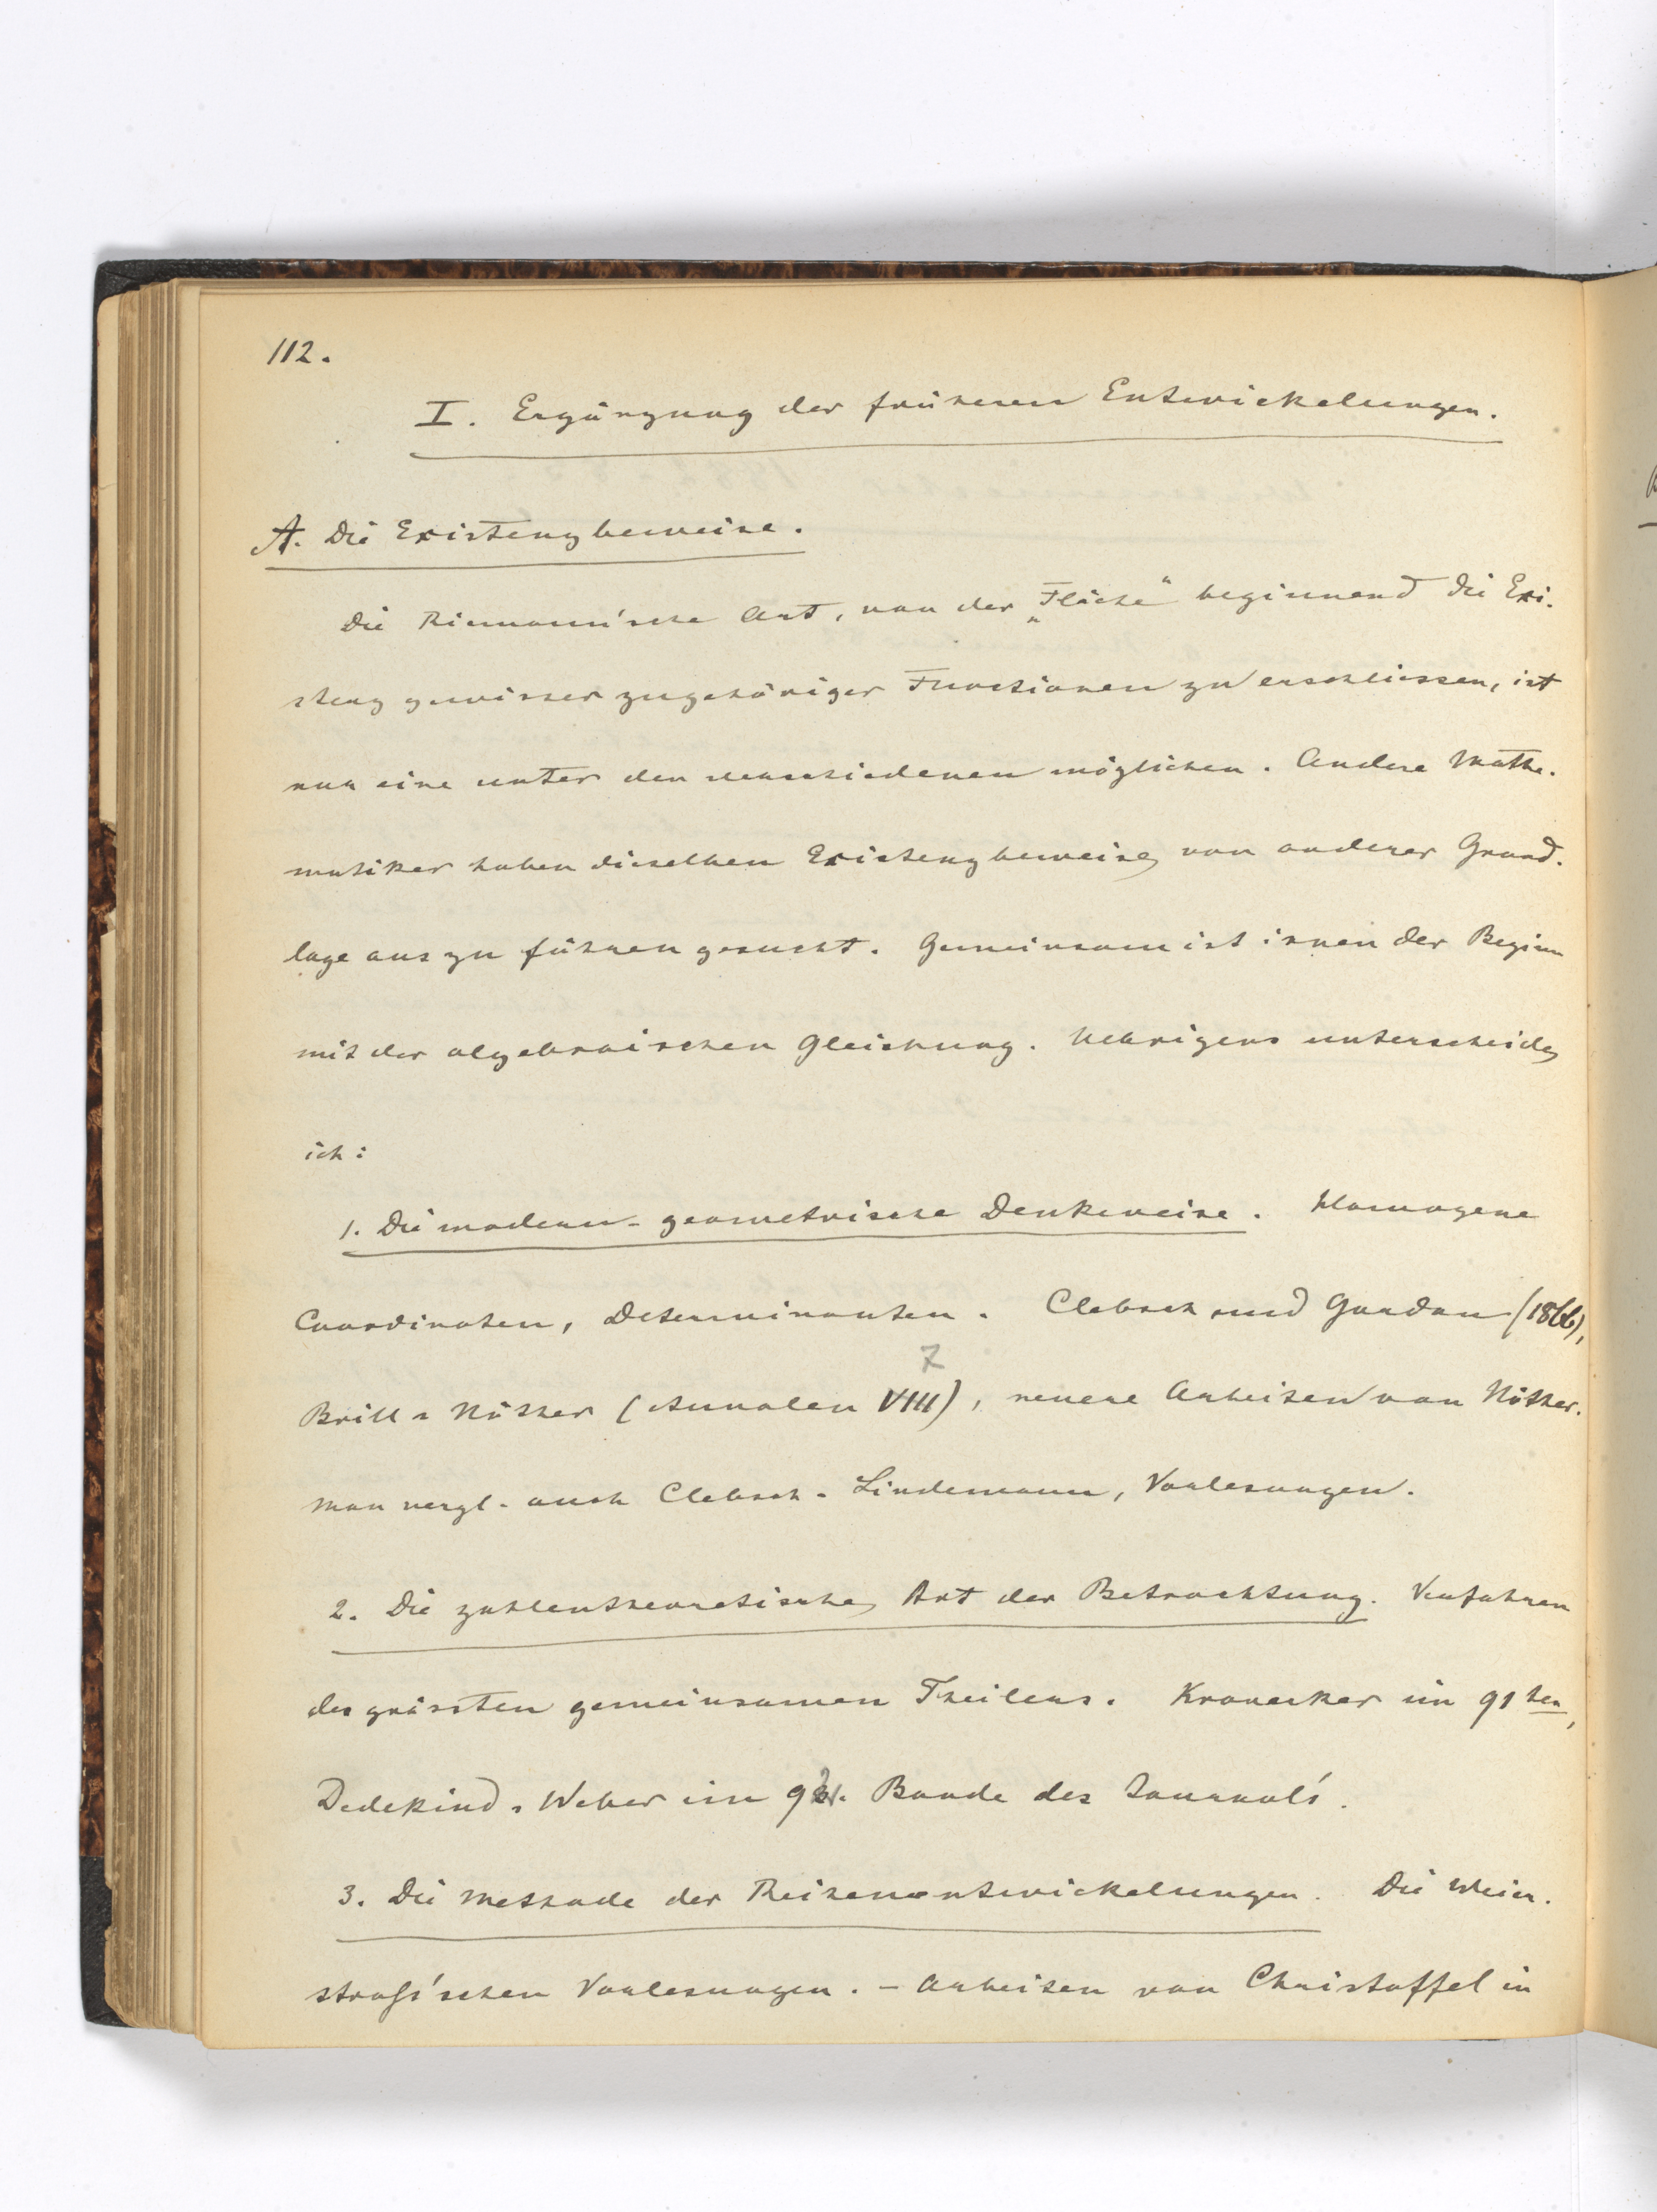 112.
I. Ergänzung der früheren Entwickelungen.
A. Die Existenzbeweise.
Die Riemann'sche Art, von der „Fläche“ beginnend die Exi-
stenz gewisser zugehöriger Functionen zu erschliessen, ist
nur eine unter den verschiedenen möglichen. Andere Mathe-
matiker haben dieselben Existenzbeweise von anderer Grund-
lage aus zu führen gesucht. Gemeinsam ist ihnen der Beginn
mit der algebraischen Gleichung. Uebrigens unterscheide
ich:
1. Die modern-geometrische Denkweise. Homogene
Coordinaten, Determinanten. Clebsch und Gordan (1866),
7
Brill-Nöther (Annalen VIII), neuere Arbeiten von Nöther.
Man vergl. auch Clebsch-Lindemann, Vorlesungen.
2. Die zahlentheoretische Art der Betrachtung. Verfahren
des grössten gemeinsamen Theilers. Kronecker im 91ten,
Dedekind-Weber im 92. Bande des Journal's.
3. Die Methode der Reihenentwickelungen. Die Weier-
straß'schen Vorlesungen. – Arbeiten von Christoffel in